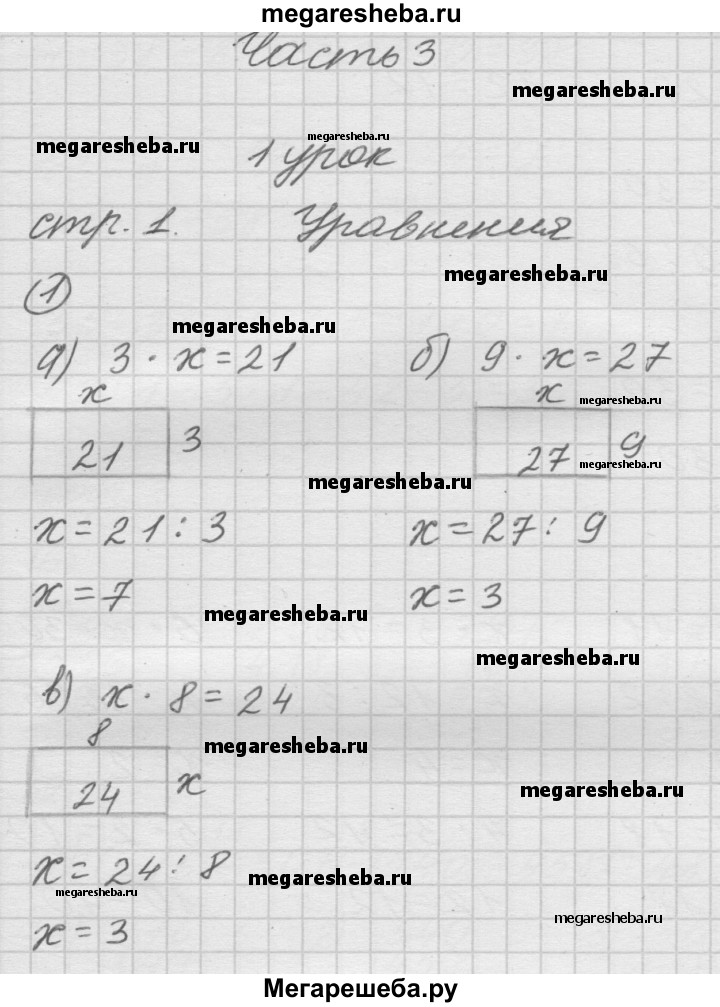 megaresheba.ru
Часть 3
megaresheba.ru
megaresheba.ru
megaresheba.ru
1 урок
стр. 1. Уравнения
megaresheba.ru
1
megaresheba.ru
а) 3 · x = 21 б) 9 · x = 27
x x megaresheba.ru
21 3 27 9
megaresheba.ru
megaresheba.ru
x = 21 : 3 x = 27 : 9
x = 7 x = 3
megaresheba.ru
megaresheba.ru
в) x · 8 = 24
8
megaresheba.ru
24 x
megaresheba.ru
x = 24 : 8
megaresheba.ru
megaresheba.ru
x = 3
megaresheba.ru
Мегарешеба.ру